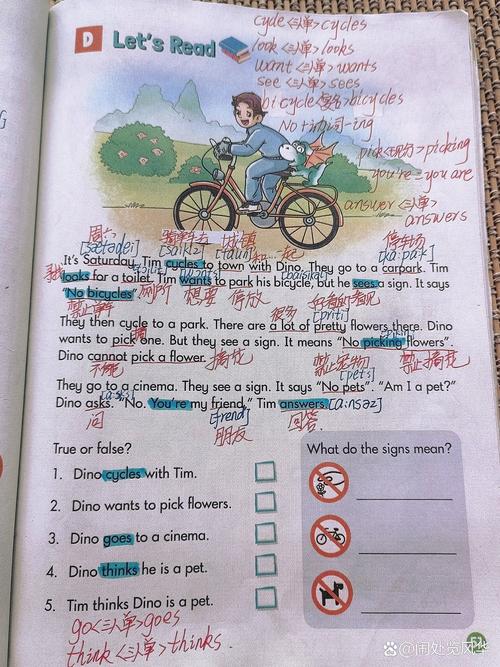 D Let's Read
cycle<三单>cycles
look<三单>looks
want<三单>wants
see<三单>sees
bicycle<复名>bicycles
No+动词-ing
pick<现分>picking
you're=you are
answer<三单>
answers
周六 骑单车去 城镇 和...一起 停车场
It's Saturday. Tim cycles to town with Dino. They go to a carpark. Tim
looks for a toilet. Tim wants to park his bicycle, but he sees a sign. It says
"No bicycles".
禁止单车 厕所 想要 停放
They then cycle to a park. There are a lot of pretty flowers there. Dino
wants to pick one. But they see a sign. It means "No picking flowers".
Dino cannot pick a flower.
不能 摘花 禁止宠物 禁止摘花
[pets]
They go to a cinema. They see a sign. It says "No pets". "Am I a pet?"
Dino asks. "No. You're my friend," Tim answers.
问 朋友 回答
True or false?
1. Dino cycles with Tim.
2. Dino wants to pick flowers.
3. Dino goes to a cinema.
4. Dino thinks he is a pet.
5. Tim thinks Dino is a pet.
What do the signs mean?
go<三单>goes
think<三单>thinks.
@闲处览风华